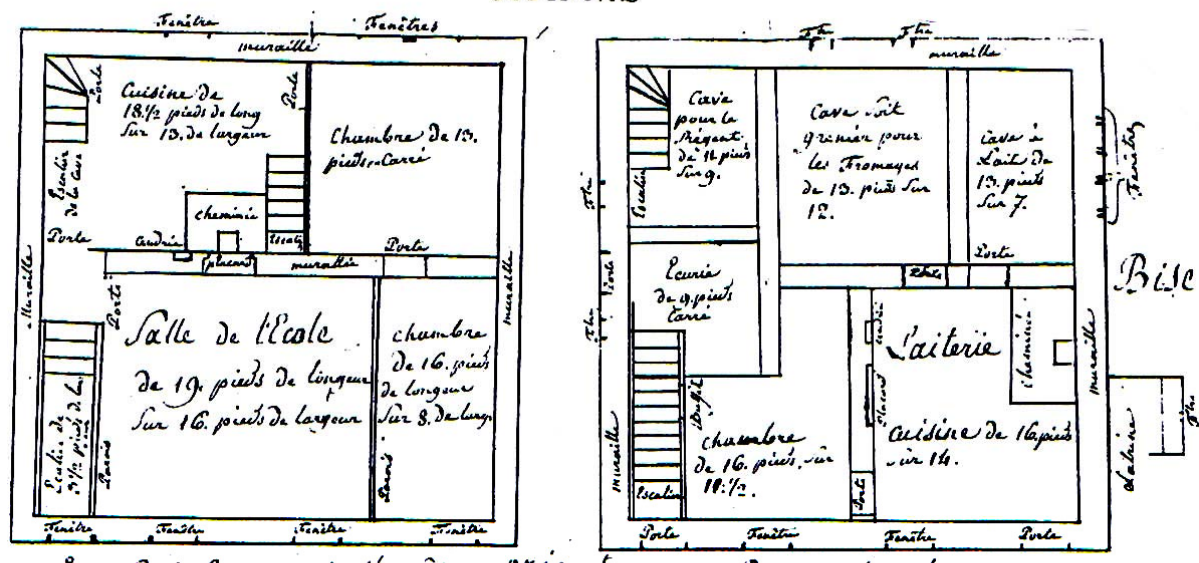 Fenêtre
Fenêtres
muraille
Porte
Cuisine de
18.1/2 pieds de long
Sur 13. de largeur
Porte
Chambre de 13.
pieds Carré
Escalier
de la cave
cheminée
Porte
Cendrié
placard
Escalié
muraille
Porte
Muraille
muraille
Porte
Salle de l'Ecole
de 19. pieds de longeur
Sur 16. pieds de largeur
chambre
de 16. pieds
de longeur
Sur 8. de largr
Escalier de
3 1/2 pieds de
Parois
Parois
Fenêtre
Fenêtre
Fenêtre
Fenêtre
Ftre
Ftre
muraille
Cave
pour le
Régent
de 11 pieds
Sur 9.
Cave soit
grenier pour
les Fromages
de 13. pieds Sur
12.
Cave à
Lait de
13. pieds
Sur 7.
Fenêtres
Escalier
Ftre
Porte
Ftre
Ecurie
de 9. pieds
Carré
Porte
Porte
Bise
Laiterie
cheminée
cendrié
Placard
Buffet
muraille
muraille
chambre
de 16. pieds, sur
11.1/2.
Cuisine de 16 pieds
sur 14.
Latrine
Ftre
Escalier
Porte
Porte
Fenêtre
Fenêtre
Porte